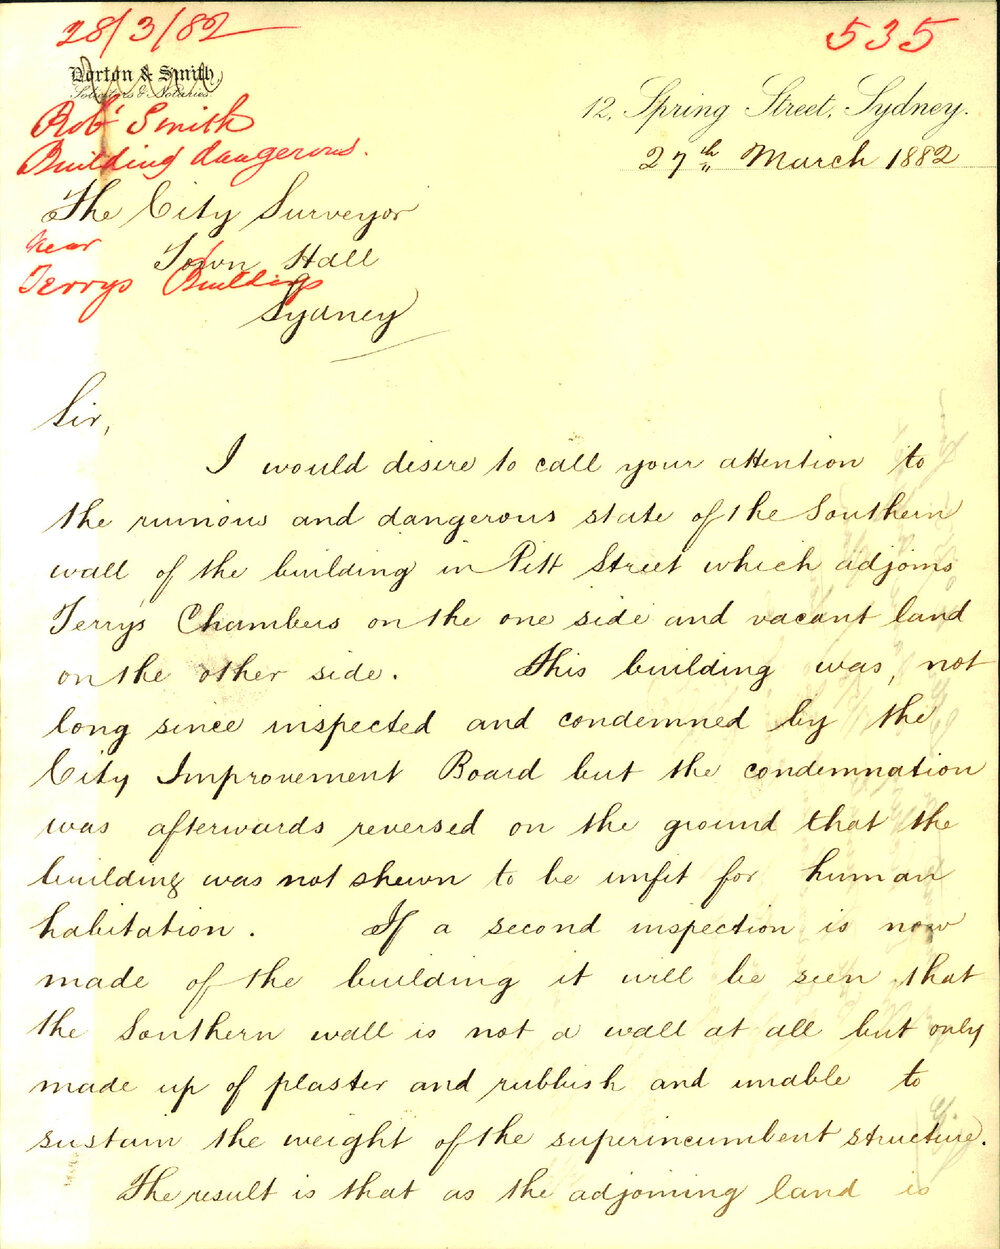 28/3/82
535
Norton & Smith,
Solicitors & Notaries.
12, Spring Street, Sydney.
27th March 1882
Robt Smith
Building dangerous.
The City Surveyor
near
Town Hall
Terrys Buildings
Sydney
Sir,
I would desire to call your attention to
the ruinous and dangerous state of the Southern
wall of the building in Pitt Street which adjoins
Terry's Chambers on the one side and vacant land
on the other side. This building was, not
long since inspected and condemned by the
City Improvement Board but the condemnation
was afterwards reversed on the ground that the
building was not shewn to be unfit for human
habitation. If a second inspection is now
made of the building it will be seen that
the Southern wall is not a wall at all but only
made up of plaster and rubbish and unable to
sustain the weight of the superincumbent structure.
The result is that as the adjoining land is